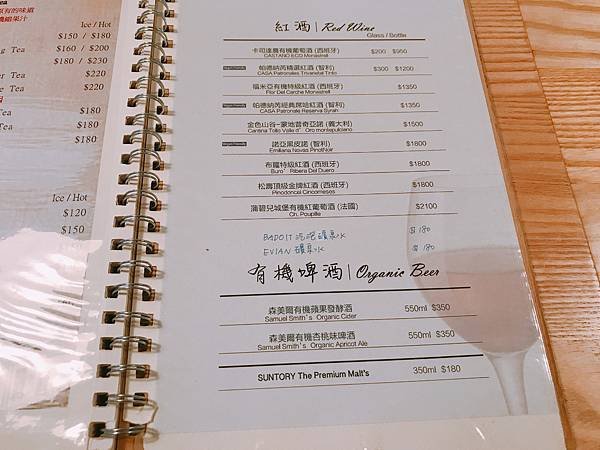 Ice / Hot
$150 / $180
ing Tea $160 / $200
$180 / $230
er Tea $220
Tea $220
Tea $180
$180 / $180
Ice / Hot
$120
$150
$180
紅酒 | Red Wine
Glass / Bottle
卡司達農有機葡萄酒 (西班牙) $200 $950
CASTANO ECO Monastrell
帕德納芮精選紅酒 (智利) $300 $1200
CASA Patronales Trivarietal Tinto
福米亞有機特級紅酒 (西班牙) $1350
Flor Del Carche Monastrell
帕德納芮經典席哈紅酒 (智利) $1350
CASA Patronale Reserva Syrah
金色山谷-蒙地普奇亞諾 (義大利) $1500
Cantina Tollo Valle d'Oro montepulciano
諾亞黑皮諾 (智利) $1800
Emiliana Novas PinotNoir
布羅特級紅酒 (西班牙) $1800
Buro' Ribera Del Duero
松壽頂級金牌紅酒 (西班牙) $1800
Pinodoncel Cincomeses
蒲碧兒城堡有機紅葡萄酒 (法國) $2100
Ch. Poupille
BADOIT 汽泡礦泉水 $180
EVIAN 礦泉水 $180
有機啤酒 | Organic Beer
森美爾有機蘋果發酵酒 550ml $350
Samuel Smith's Organic Cider
森美爾有機杏桃味啤酒 550ml $350
Samuel Smith's Organic Apricot Ale
SUNTORY The Premium Malt's 350ml $180